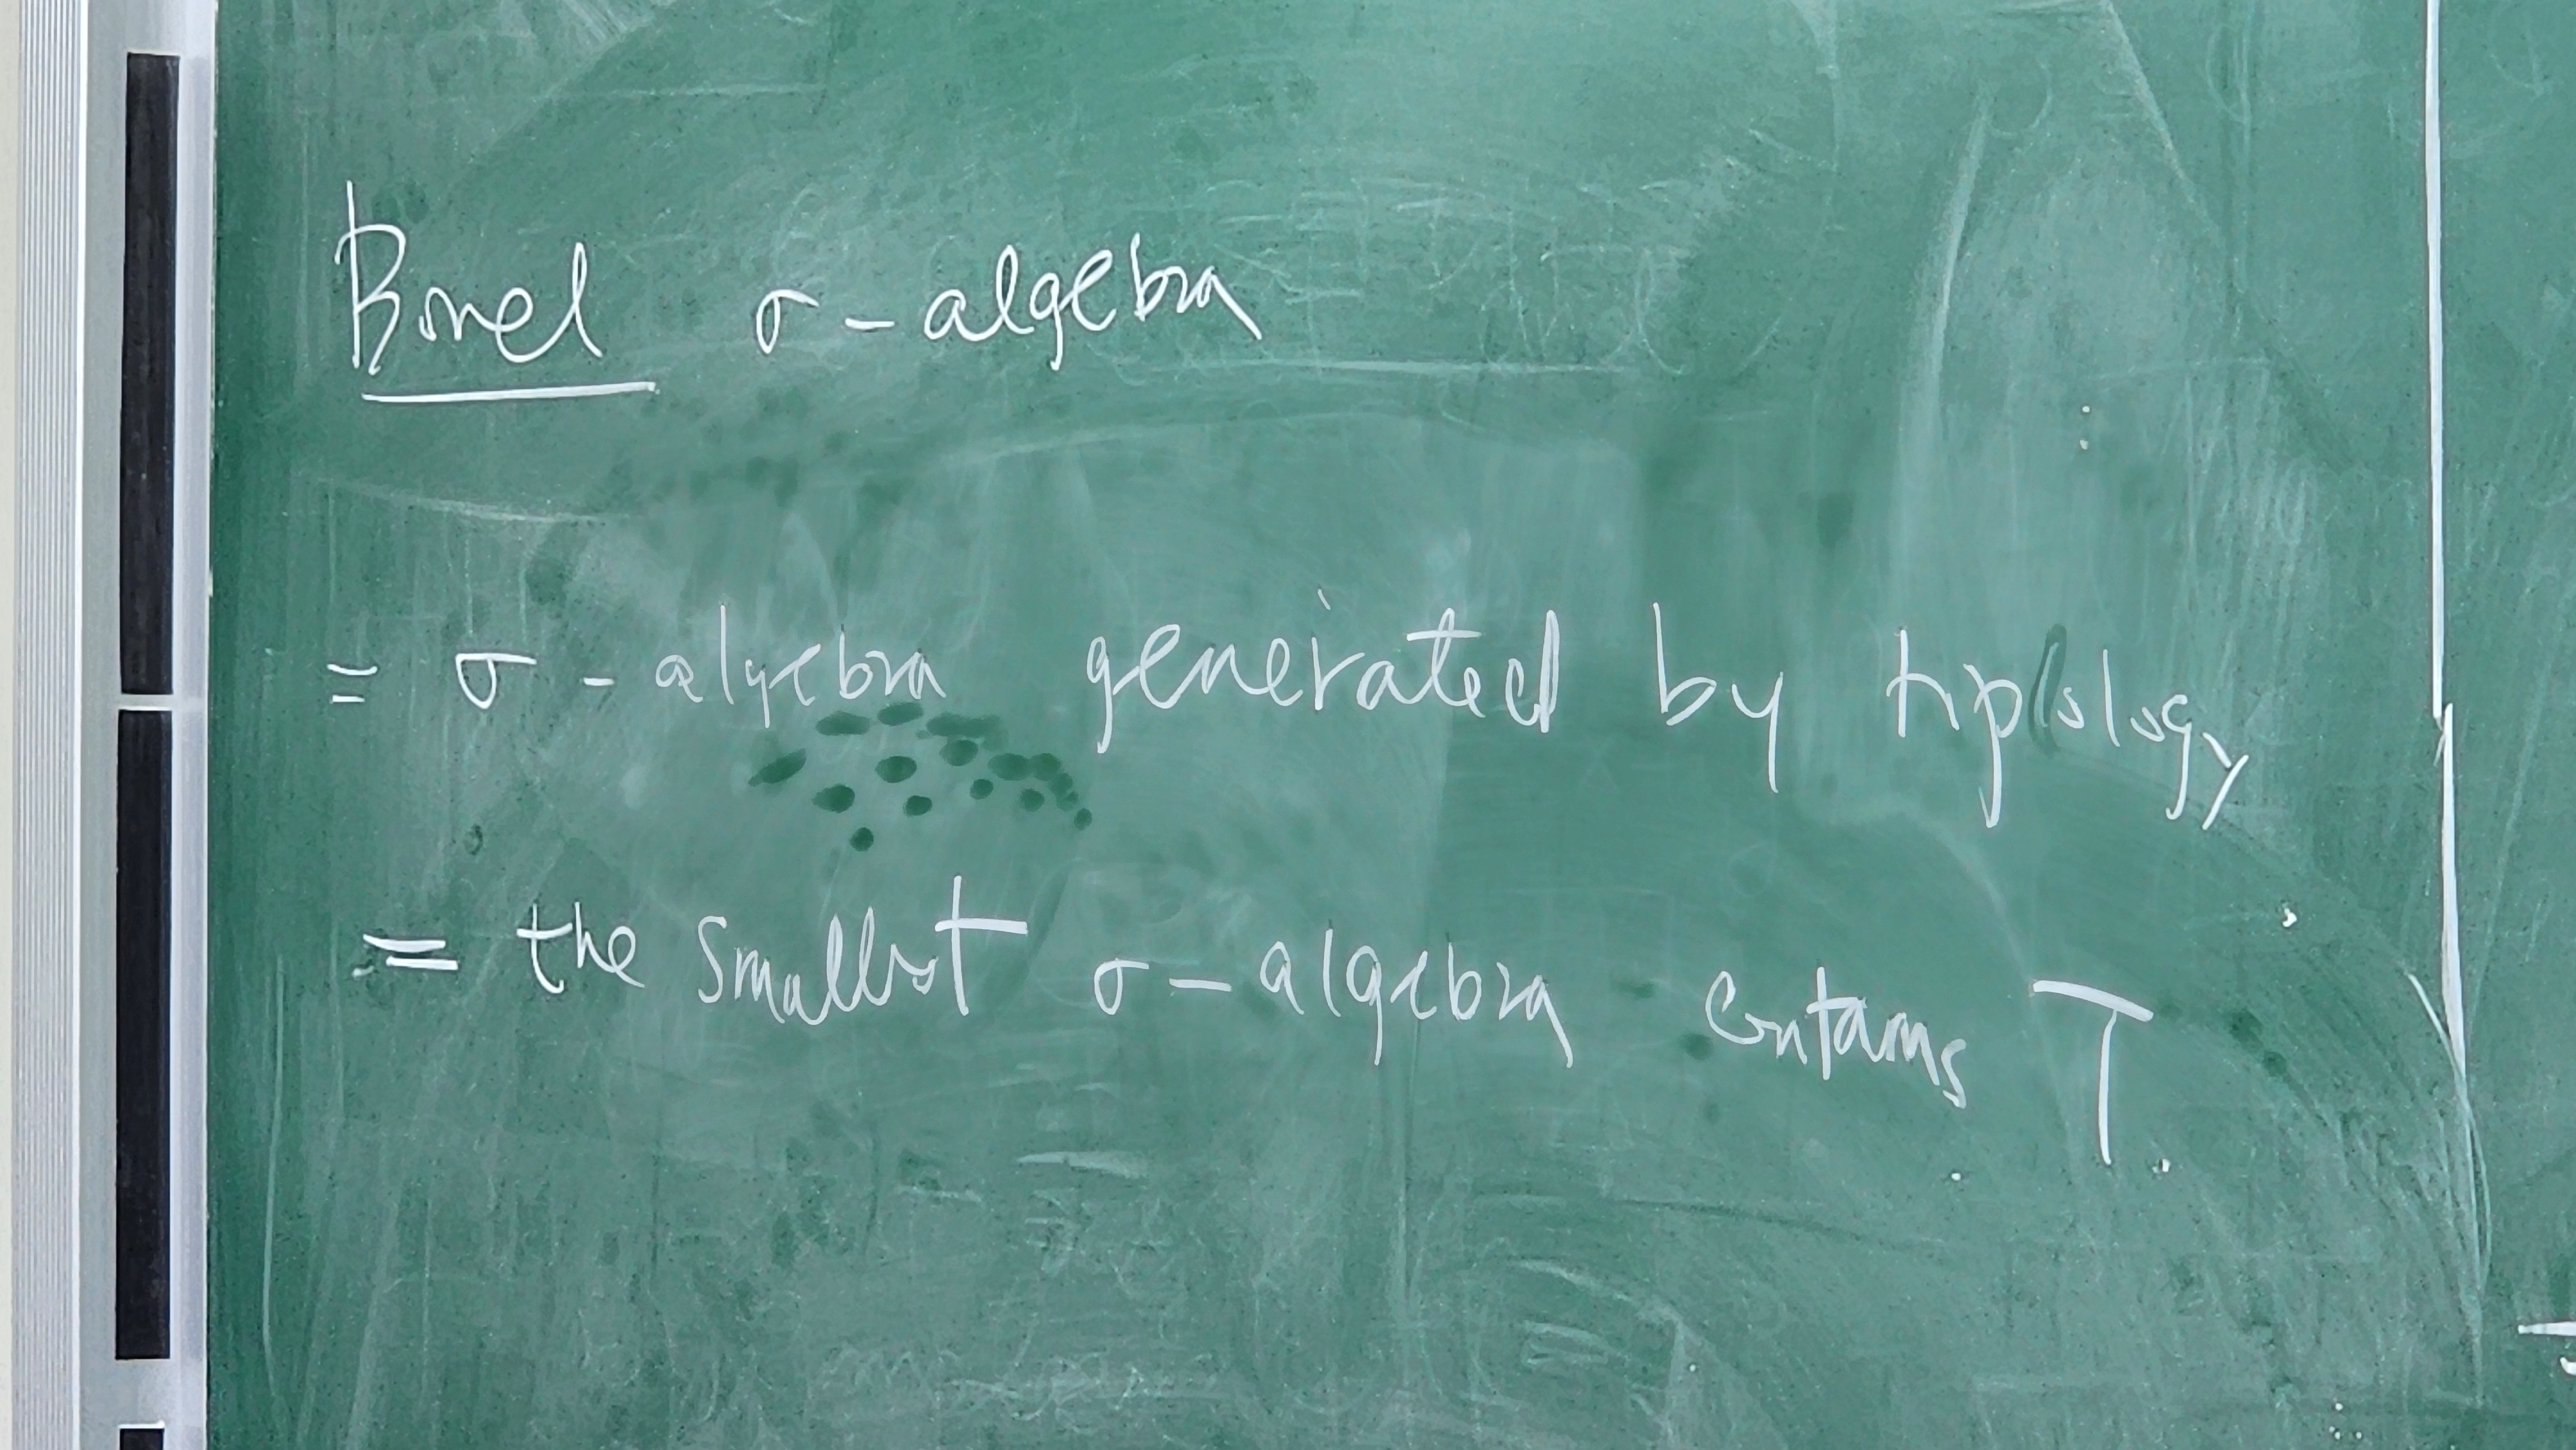 Borel σ-algebra
= σ-algebra generated by topology
= the smallest σ-algebra contains T.